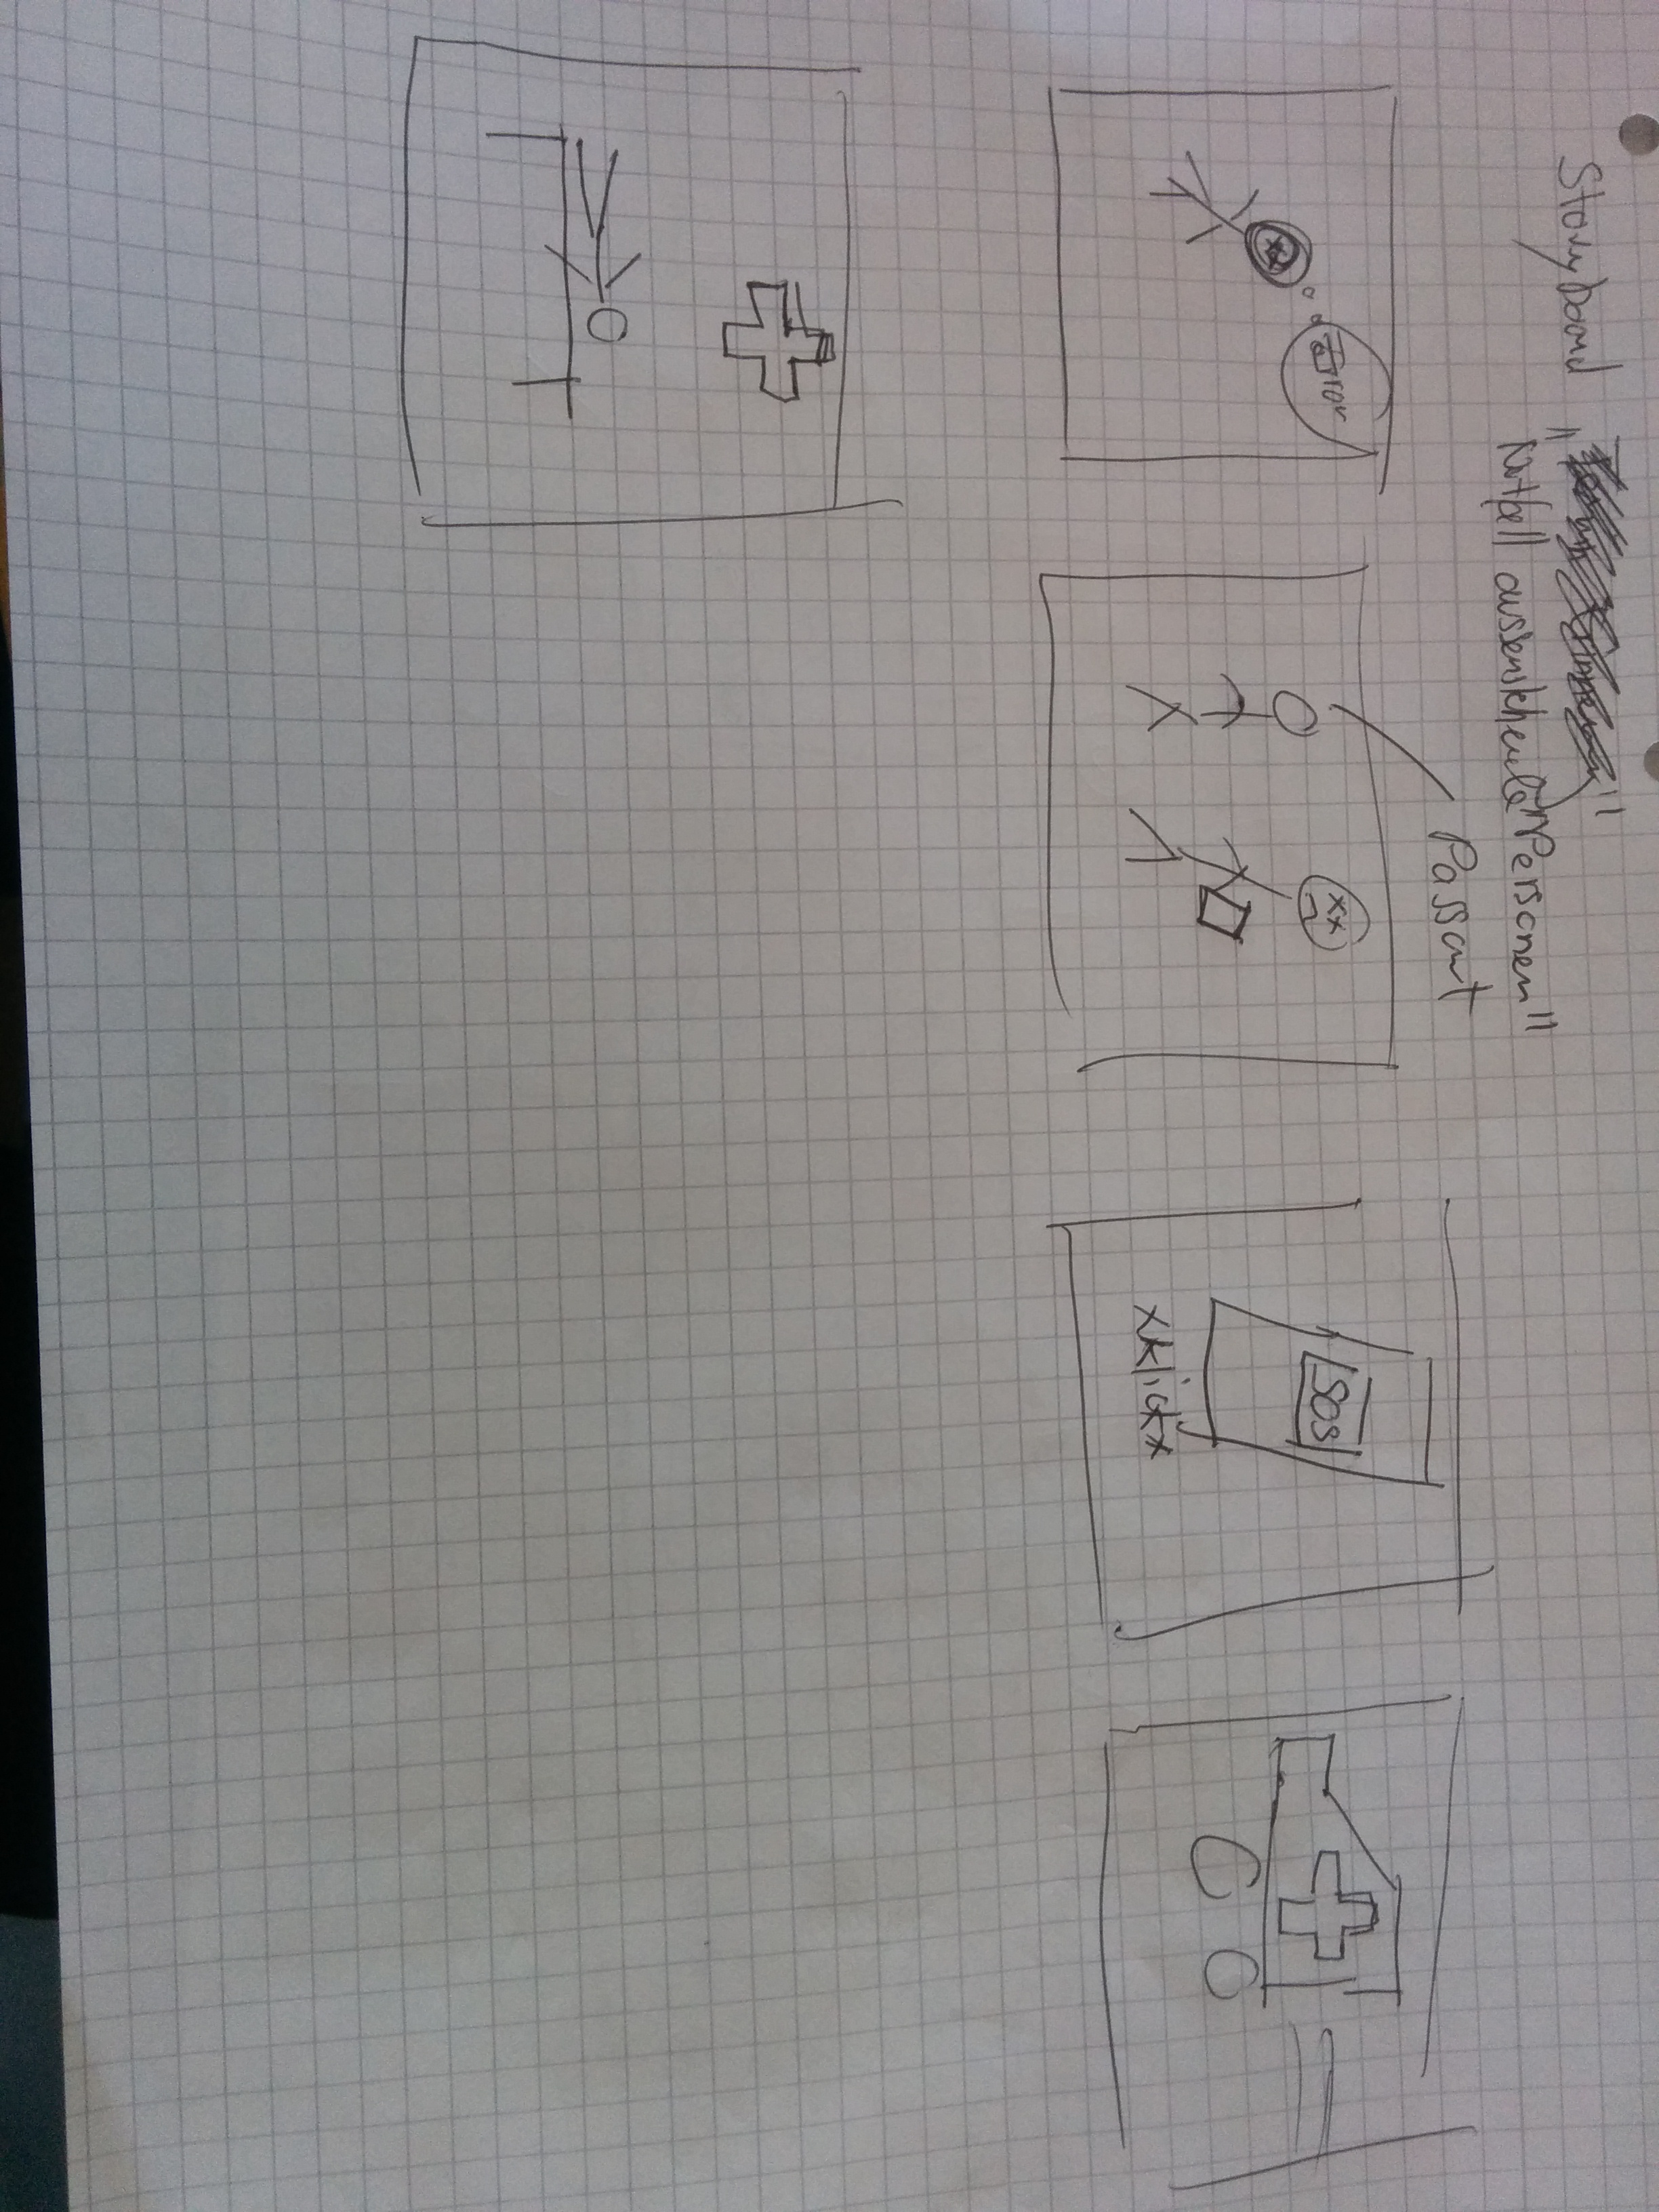 Storyboard "
Notfall aussenstehende Personen"
Passant
Error
SOS
xklickx